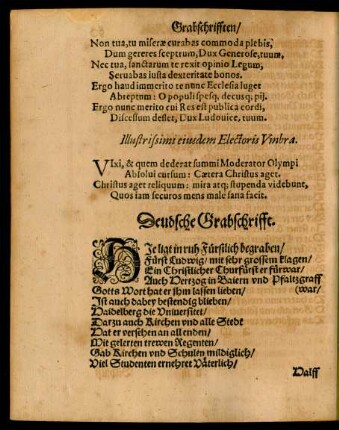 Grabschrifften/
Non tua, tu miseræ curabas commoda plebis,
Dum gereres sceptrum, Dux Generose, tuum,
Nec tua, sanctarum te rexit opinio Legum,
Seruabas iusta dexteritate bonos.
Ergo haud immerito te nunc Ecclesia luget
Abreptum: O populi spesq; decusq; pij.
Ergo nunc merito cui Res est publica cordi,
Discessum deflet, Dux Ludouice, tuum.
Illustrissimi eiusdem Electoris Vmbra.
VIxi, & quem dederat summi Moderator Olympi
Absolui cursum: Cætera Christus aget.
Christus aget reliquum: mira atq; stupenda videbunt,
Quos iam securos mens male sana facit.
Deudsche Grabschrifft.
HIe ligt in ruh Fürstlich begraben/
Fürst Ludwig/ mit sehr grossem klagen/
Ein Christlicher Churfürst er fürwar/
Auch Hertzog in Baiern vnd Pfaltzgraff
Gotts Wort hat er ihm lassen lieben/ (war/
Ist auch dabey bestendig blieben/
Haidelberg die Vniuersitet/
Darzu auch Kirchen vnd alle Stedt
Hat er versehen an all enden/
Mit gelerten trewen Regenten/
Gab Kirchen vnd Schulen mildiglich/
Viel Studenten ernehret Väterlich/
Halff